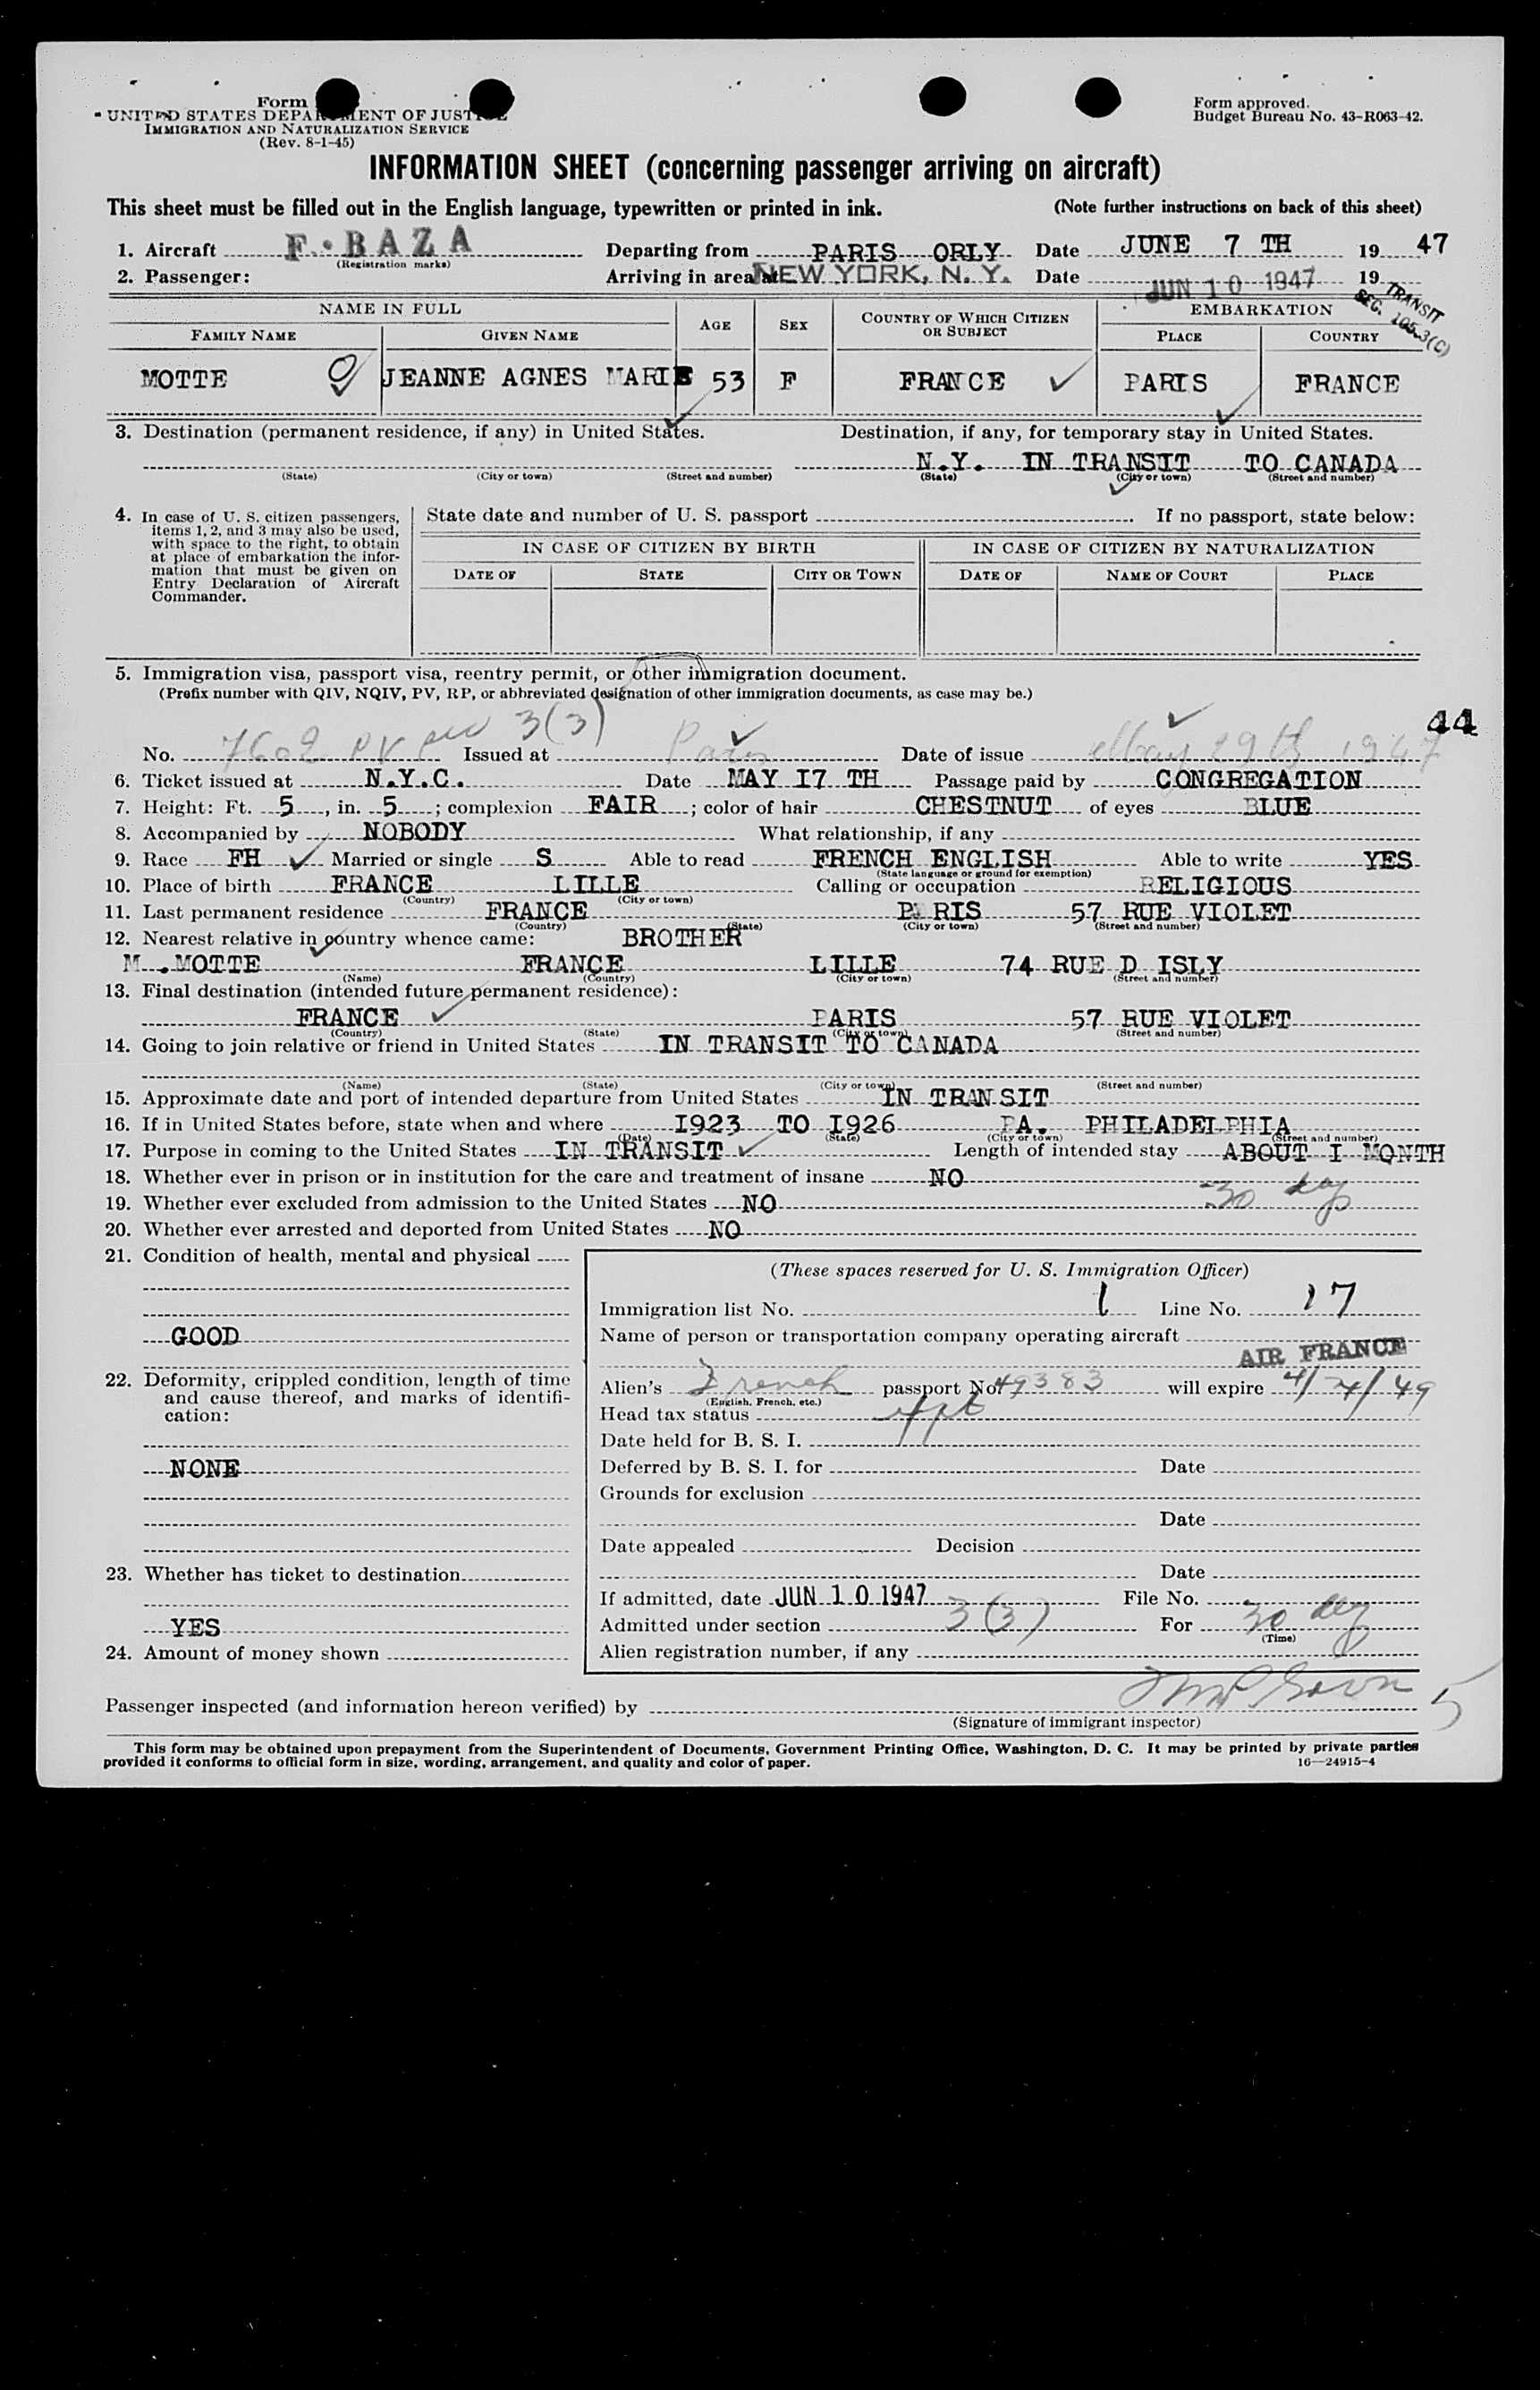 Form
UNITED STATES DEPARTMENT OF JUSTICE
IMMIGRATION AND NATURALIZATION SERVICE
(Rev. 8-1-45)
Form approved.
Budget Bureau No. 43-R063-42.
INFORMATION SHEET (concerning passenger arriving on aircraft)
This sheet must be filled out in the English language, typewritten or printed in ink. (Note further instructions on back of this sheet)
1. Aircraft F.BAZA Departing from PARIS ORLY Date JUNE 7 TH 19 47
(Registration marks)
2. Passenger: Arriving in area at NEW YORK, N. Y. Date JUN 10 1947 19
TRANSIT
SEC. 105.3(C)
NAME IN FULL AGE SEX COUNTRY OF WHICH CITIZEN OR SUBJECT EMBARKATION
FAMILY NAME GIVEN NAME PLACE COUNTRY
MOTTE JEANNE AGNES MARIE 53 F FRANCE PARIS FRANCE
3. Destination (permanent residence, if any) in United States. Destination, if any, for temporary stay in United States.
N.Y. IN TRANSIT TO CANADA
(State) (City or town) (Street and number) (State) (City or town) (Street and number)
4. In case of U. S. citizen passengers, items 1, 2, and 3 may also be used, with space to the right, to obtain at place of embarkation the information that must be given on Entry Declaration of Aircraft Commander.
State date and number of U. S. passport If no passport, state below:
IN CASE OF CITIZEN BY BIRTH IN CASE OF CITIZEN BY NATURALIZATION
DATE OF STATE CITY OR TOWN DATE OF NAME OF COURT PLACE
5. Immigration visa, passport visa, reentry permit, or other immigration document.
(Prefix number with QIV, NQIV, PV, RP, or abbreviated designation of other immigration documents, as case may be.)
44
No. 7602 PV sec 3(3) Issued at Paris Date of issue May 29th 1947
6. Ticket issued at N.Y.C. Date MAY I7 TH Passage paid by CONGREGATION
7. Height: Ft. 5, in. 5; complexion FAIR; color of hair CHESTNUT of eyes BLUE
8. Accompanied by NOBODY What relationship, if any
9. Race FH Married or single S Able to read FRENCH ENGLISH Able to write YES
(State language or ground for exemption)
10. Place of birth FRANCE LILLE Calling or occupation RELIGIOUS
(Country) (City or town)
11. Last permanent residence FRANCE PARIS 57 RUE VIOLET
(Country) (State) (City or town) (Street and number)
12. Nearest relative in country whence came: BROTHER
M. MOTTE FRANCE LILLE 74 RUE D ISLY
(Name) (Country) (City or town) (Street and number)
13. Final destination (intended future permanent residence):
FRANCE PARIS 57 RUE VIOLET
(Country) (State) (City or town) (Street and number)
14. Going to join relative or friend in United States IN TRANSIT TO CANADA
(Name) (State) (City or town) (Street and number)
15. Approximate date and port of intended departure from United States IN TRANSIT
16. If in United States before, state when and where I923 TO I926 PA. PHILADELPHIA
(Date) (State) (City or town) (Street and number)
17. Purpose in coming to the United States IN TRANSIT Length of intended stay ABOUT I MONTH
18. Whether ever in prison or in institution for the care and treatment of insane NO
30 days
19. Whether ever excluded from admission to the United States NO
20. Whether ever arrested and deported from United States NO
21. Condition of health, mental and physical
GOOD
22. Deformity, crippled condition, length of time and cause thereof, and marks of identification:
NONE
23. Whether has ticket to destination
YES
24. Amount of money shown
(These spaces reserved for U. S. Immigration Officer)
Immigration list No. 1 Line No. 17
Name of person or transportation company operating aircraft
AIR FRANCE
Alien's French passport No. 49383 will expire 4/24/49
(English, French, etc.)
Head tax status
Date held for B. S. I.
Deferred by B. S. I. for Date
Grounds for exclusion
Date
Date appealed Decision
Date
If admitted, date JUN 10 1947 File No.
Admitted under section 3(3) For 30 days
(Time)
Alien registration number, if any
Passenger inspected (and information hereon verified) by
5
(Signature of immigrant inspector)
This form may be obtained upon prepayment from the Superintendent of Documents, Government Printing Office, Washington, D. C. It may be printed by private parties
provided it conforms to official form in size, wording, arrangement, and quality and color of paper. 16—24915-4